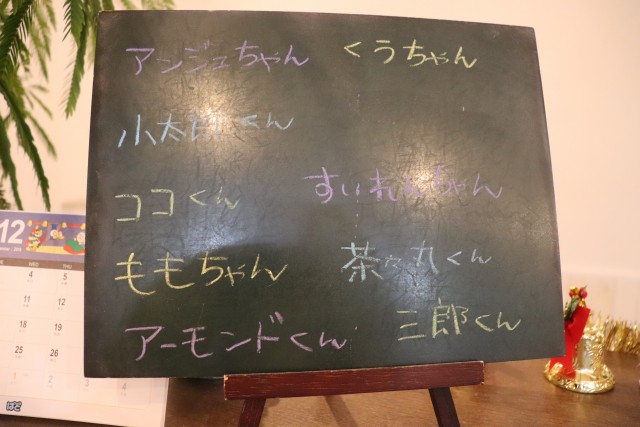 アンジュちゃん くうちゃん
小太郎くん
ココくん すいれんちゃん
ももちゃん 茶々丸くん
アーモンドくん 三郎くん
12
WED THU
4 5
11 12
18 19
25 26